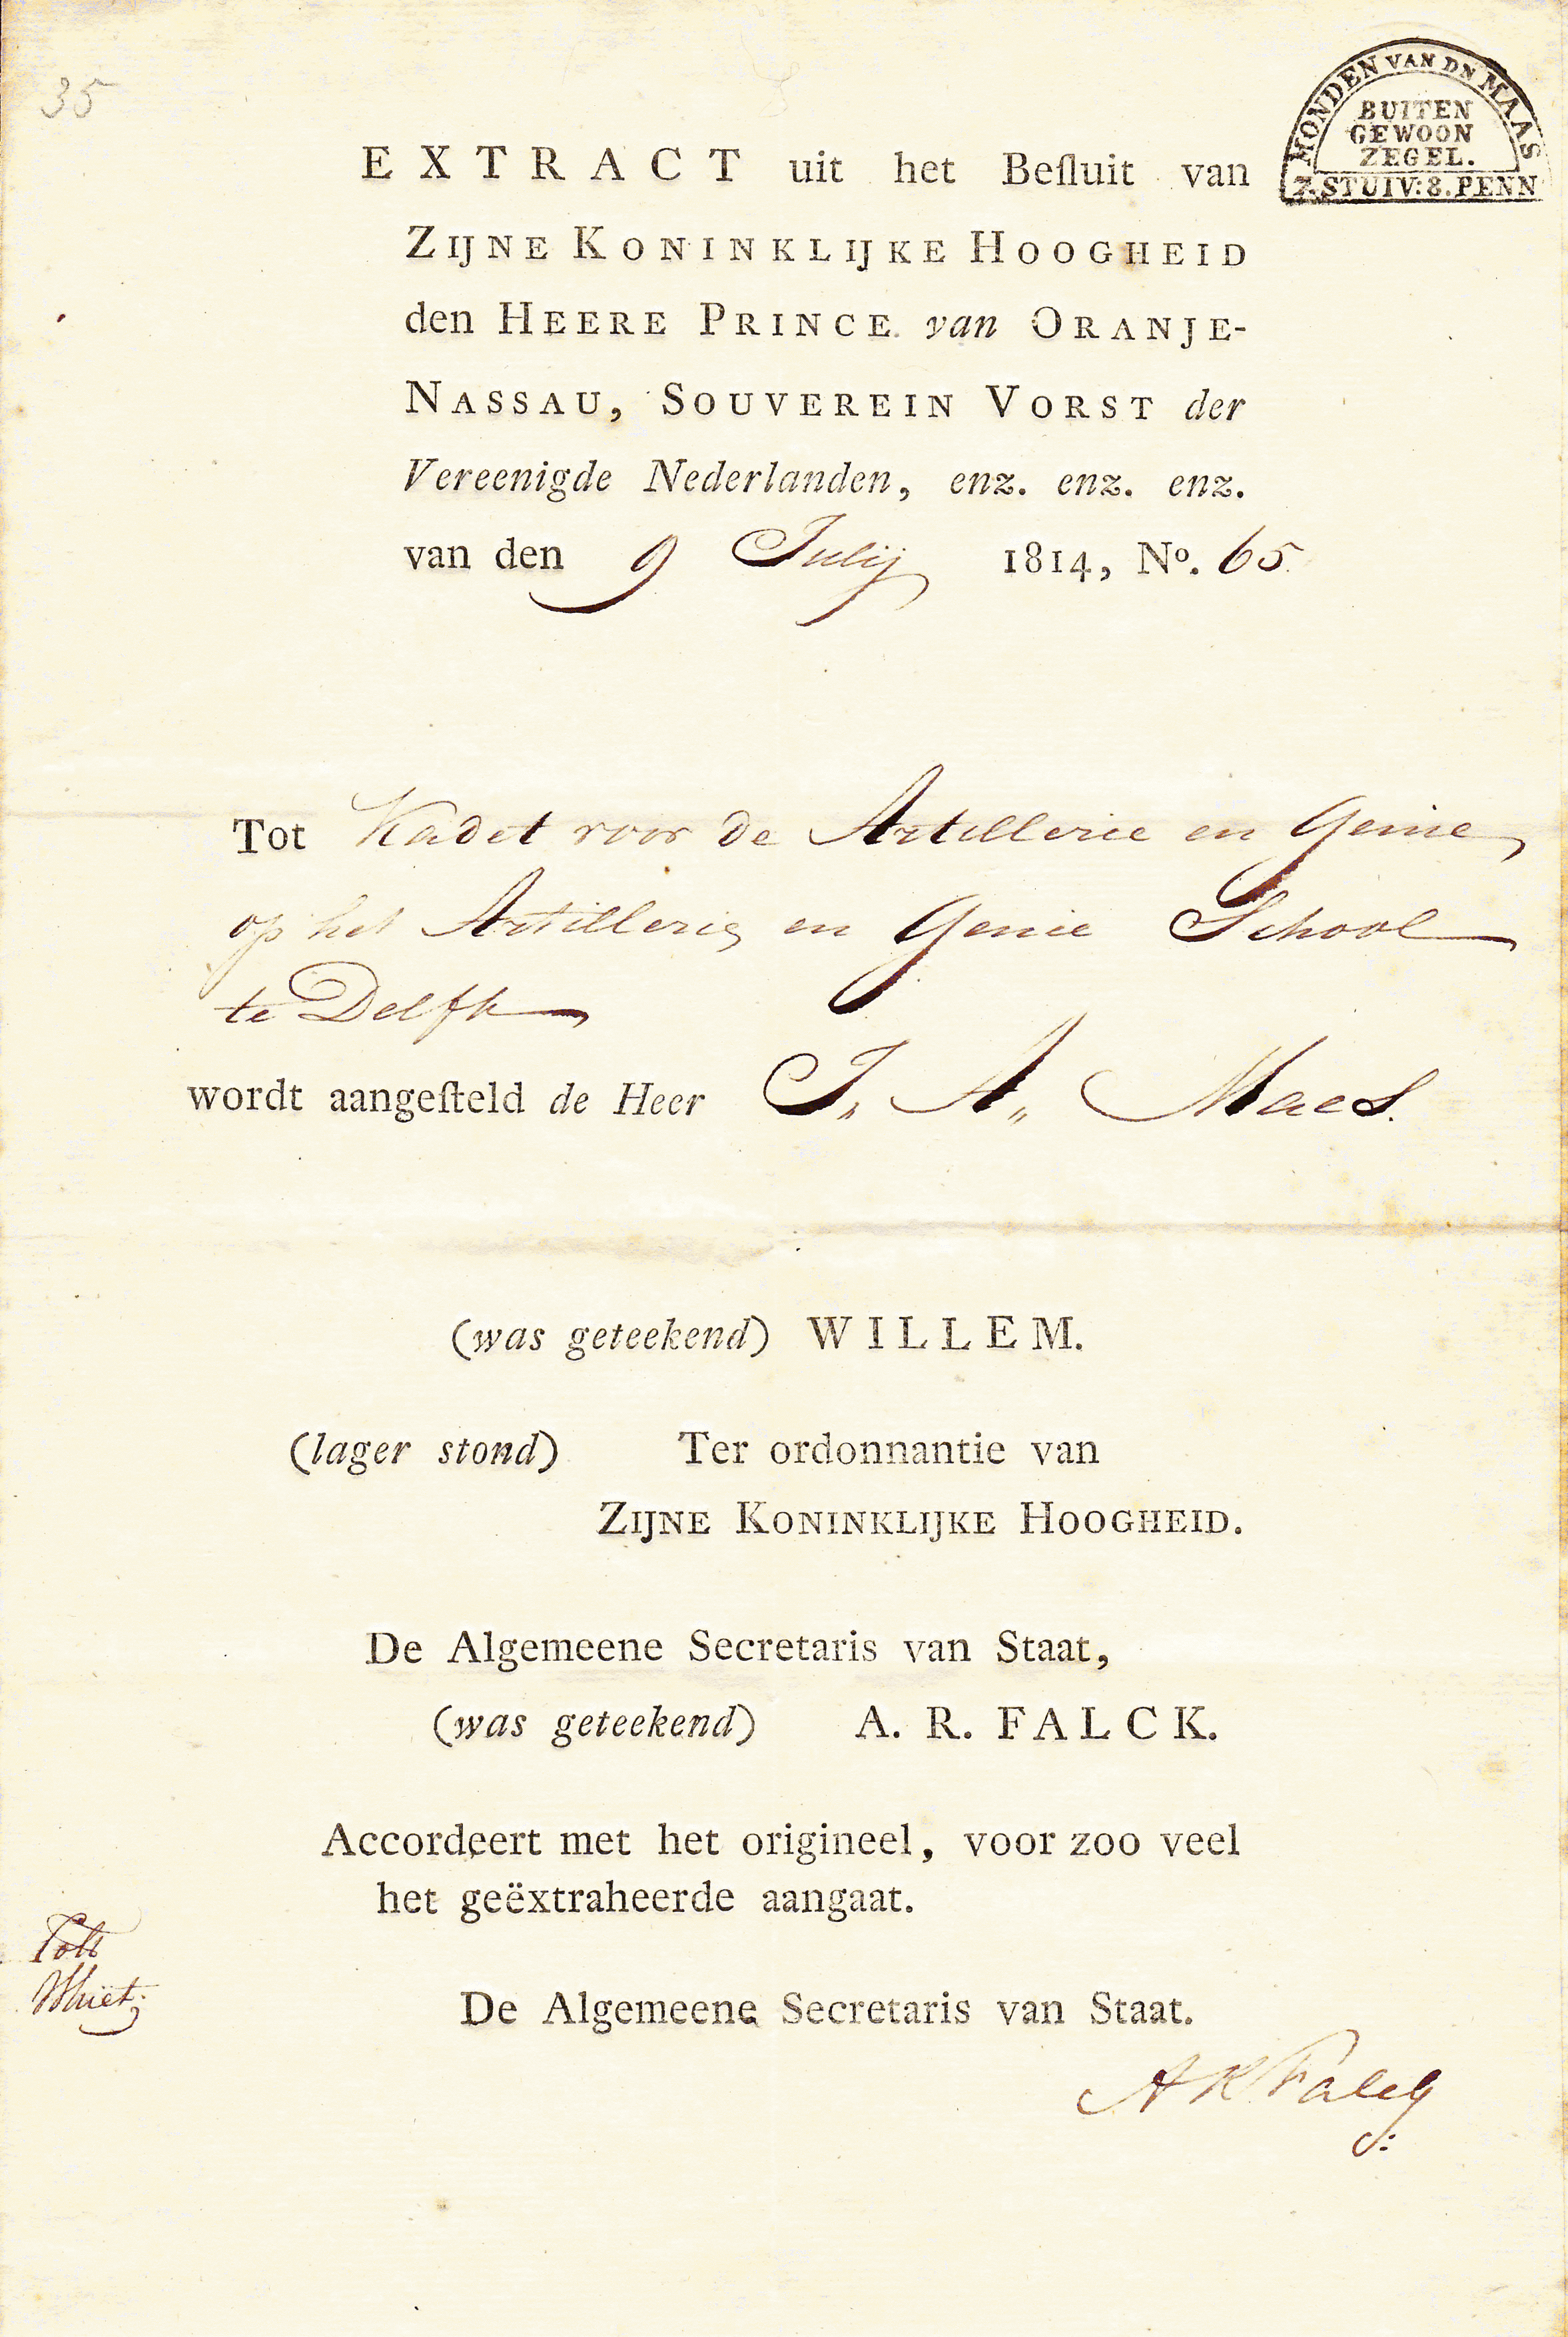 35
MONDEN VAN DN MAAS
BUITEN
GEWOON
ZEGEL.
7.STUIV:8.PENN
EXTRACT uit het Beſluit van
ZIJNE KONINKLIJKE HOOGHEID
den HEERE PRINCE van ORANJE-
NASSAU, SOUVEREIN VORST der
Vereenigde Nederlanden, enz. enz. enz.
van den 9 Julij 1814, Nº. 65
Tot Kadet voor de Artillerie en Genie
op het Artillerie en Genie School
te Delft
wordt aangeſteld de Heer J. A. Maes.
(was geteekend) WILLEM.
(lager stond) Ter ordonnantie van
ZIJNE KONINKLIJKE HOOGHEID.
De Algemeene Secretaris van Staat,
(was geteekend) A. R. FALCK.
Accordeert met het origineel, voor zoo veel
het geëxtraheerde aangaat.
De Algemeene Secretaris van Staat.
A R Falck